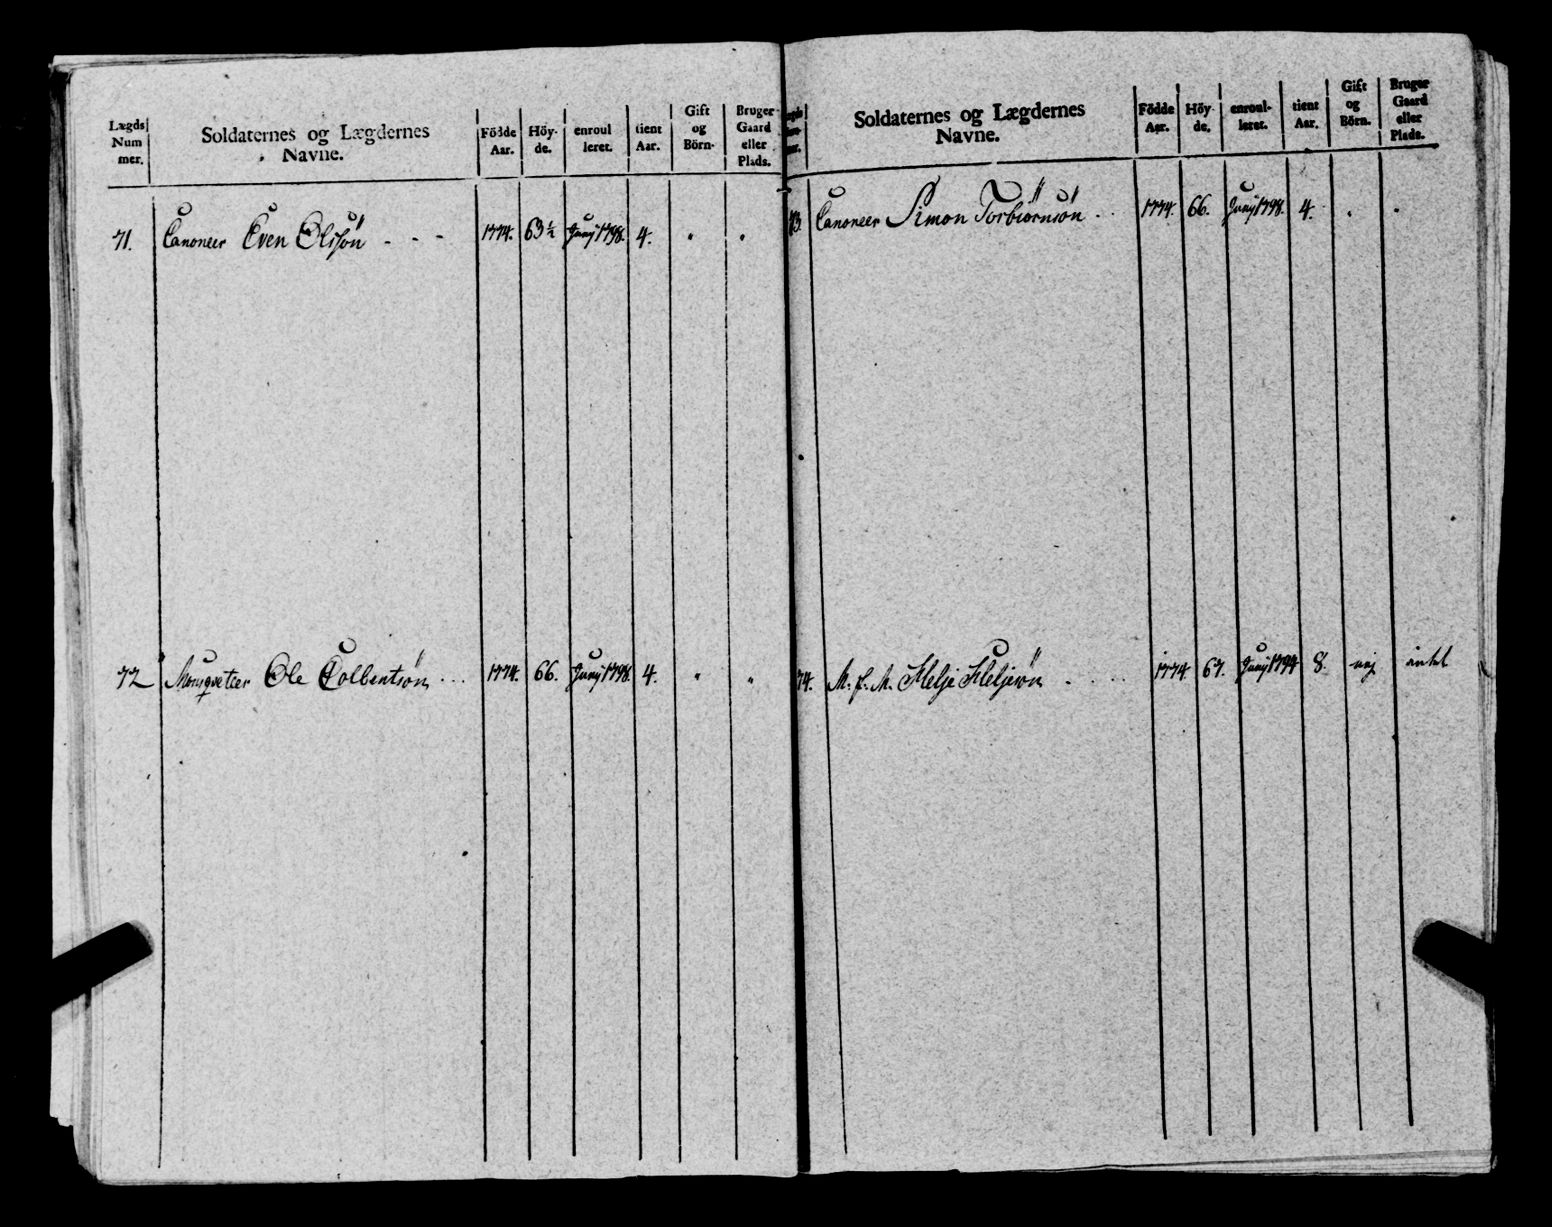 Lægds Num mer. | Soldaternes og Lægdernes Navne. | Födde Aar. | Höy- de. | enroul leret. | tient Aar. | Gift og Börn- | Bruger Gaard eller Plads.
71. Canoneer Even Olisön - - - 1774. 63½ Junj 1798. 4. " "
72 Mousqveteer Ole Colbentsön ... 1774. 66. Junj 1798. 4. " "
Soldaternes og Lægdernes Navne. | Födde Aar. | Höy- de. | enroul- leret. | tient Aar. | Gift og Börn. | Bruger Gaard eller Plads.
73. Canoneer Simon Torbiörnsön .. 1774. 66. Junj 1798. 4. " "
74. M. f. M. Helje Heljesön .... 1774 67. Junj 1794 8. nej intet